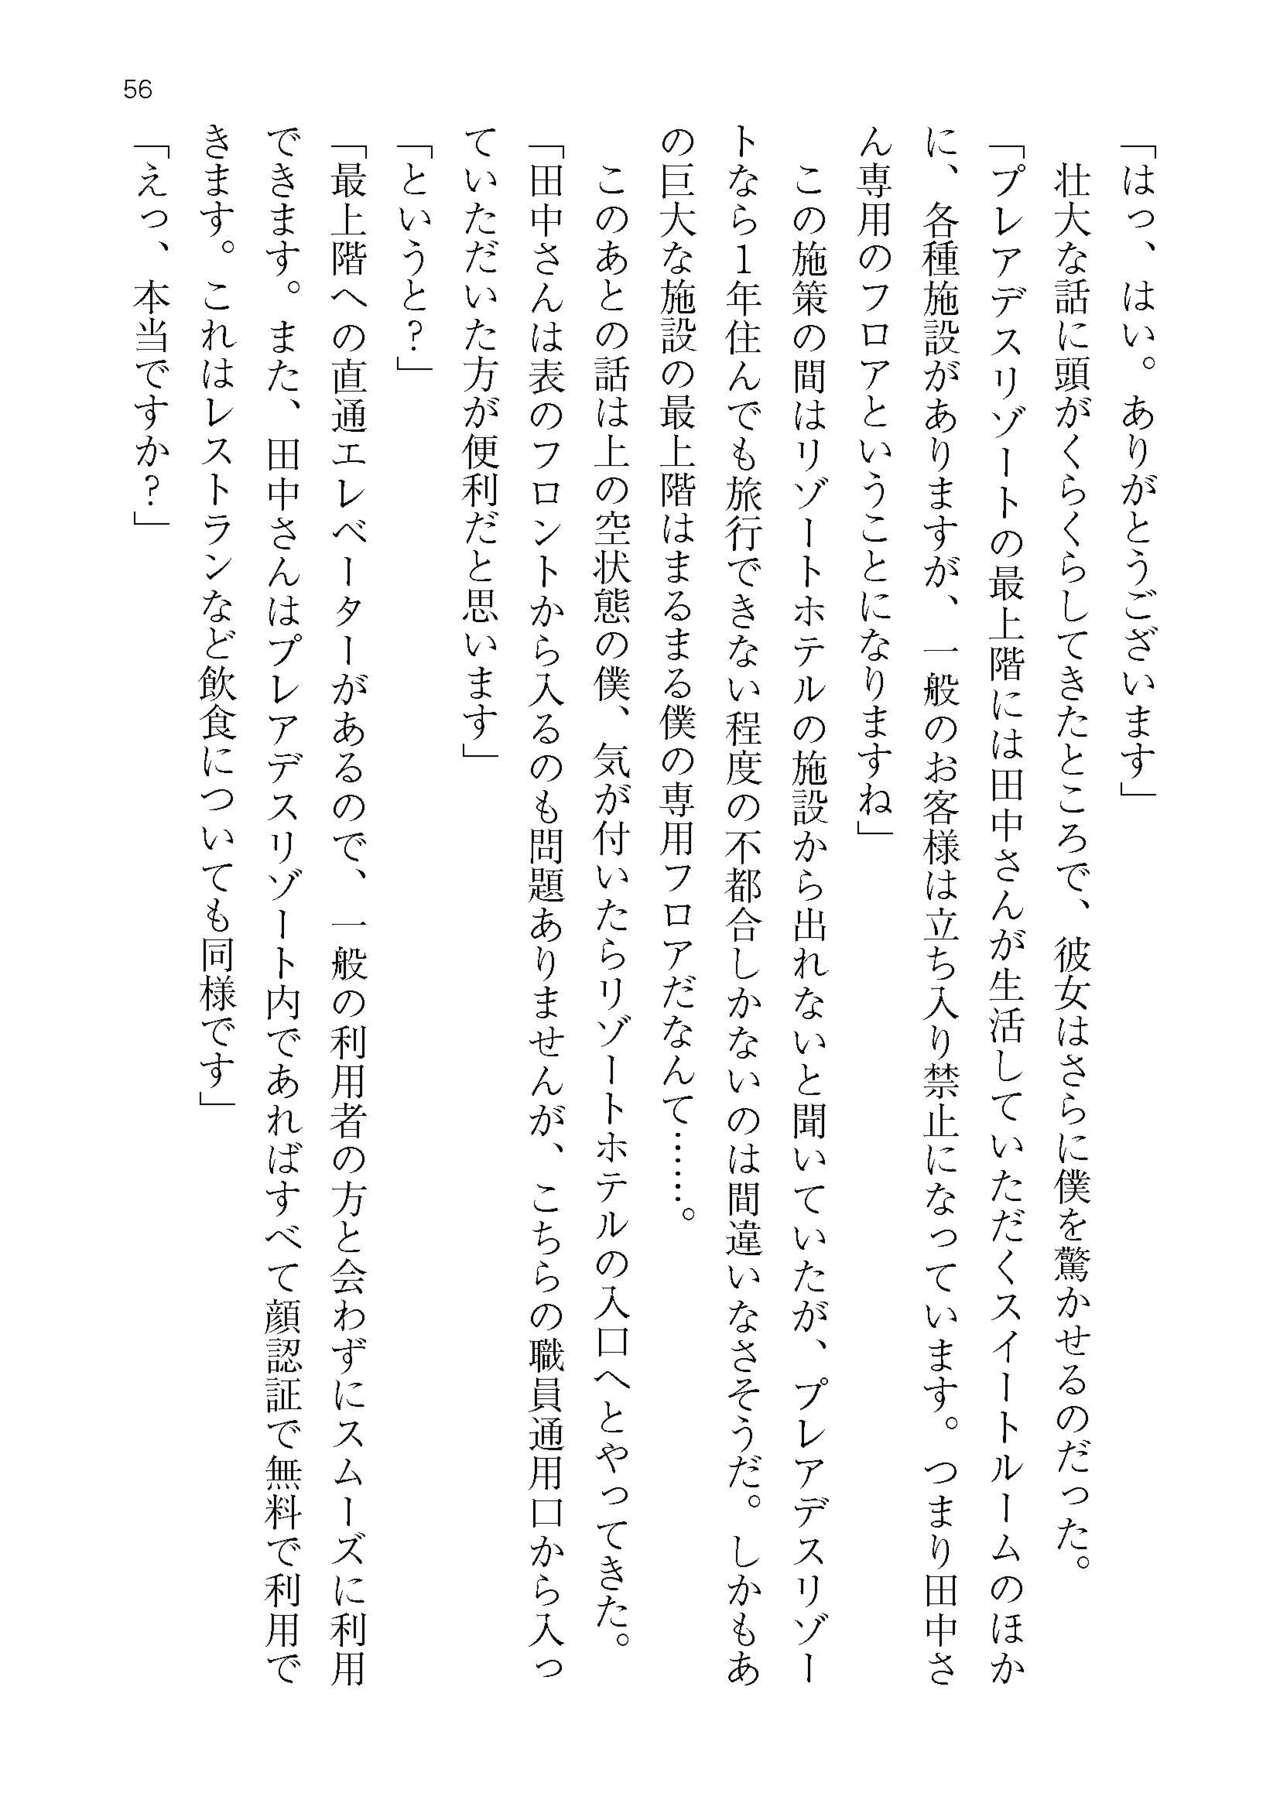 56
「はっ、はい。ありがとうございます」
　壮大な話に頭がくらくらしてきたところで、彼女はさらに僕を驚かせるのだった。
「プレアデスリゾートの最上階には田中さんが生活していただくスイートルームのほか
に、各種施設がありますが、一般のお客様は立ち入り禁止になっています。つまり田中さ
ん専用のフロアということになりますね」
　この施策の間はリゾートホテルの施設から出れないと聞いていたが、プレアデスリゾー
トなら１年住んでも旅行できない程度の不都合しかないのは間違いなさそうだ。しかもあ
の巨大な施設の最上階はまるまる僕の専用フロアだなんて……。
　このあとの話は上の空状態の僕、気が付いたらリゾートホテルの入口へとやってきた。
「田中さんは表のフロントから入るのも問題ありませんが、こちらの職員通用口から入っ
ていただいた方が便利だと思います」
「というと？」
「最上階への直通エレベーターがあるので、一般の利用者の方と会わずにスムーズに利用
できます。また、田中さんはプレアデスリゾート内であればすべて顔認証で無料で利用で
きます。これはレストランなど飲食についても同様です」
「えっ、本当ですか？」